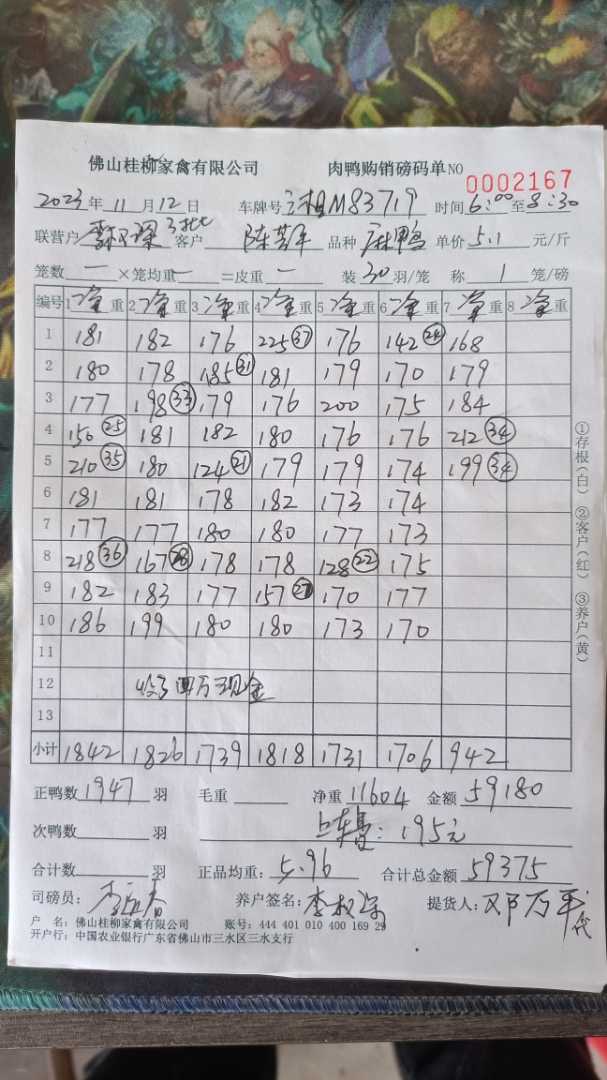 佛山桂柳家禽有限公司 肉鸭购销磅码单NO 0002167
2023年11月12日 车牌号 湘M83719 时间6:00至8:30
联营户 3批 客户 陈芳平 品种 麻鸭 单价5.1元/斤
笼数 一 ×笼均重 一 =皮重 一 装30羽/笼 称1笼/磅
编号 1净重 2净重 3净重 4净重 5净重 6净重 7净重 8净重
1 181 182 176 225(37) 176 142(24) 168
2 180 178 185(31) 181 179 170 179
3 177 198(33) 179 176 200 175 184
4 150(25) 181 182 180 176 176 212(34)
5 210(35) 180 124(21) 179 179 174 199(34)
6 181 181 178 182 173 174
7 177 177 180 180 177 173
8 218(36) 167(28) 178 178 128(22) 175
9 182 183 177 157(27) 170 177
10 186 199 180 180 173 170
11
12 收了四万现金
13
小计 1842 1826 1739 1818 1731 1706 942
正鸭数1947羽 毛重 净重11604 金额59180
次鸭数 羽 上车费:195元
合计数 羽 正品均重:5.96 合计总金额59375
司磅员: 养户签名: 提货人:邓万平代
户 名:佛山桂柳家禽有限公司 账号:444 401 010 400 169 29
开户行:中国农业银行广东省佛山市三水区三水支行
①存根(白) ②客户(红) ③养户(黄)